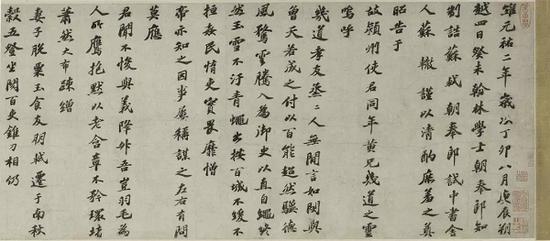 維元祐二年歲次丁卯八月庚辰朔
越四日癸未翰林學士朝奉郎知
制誥蘇軾朝奉郎試中書舍
人蘇轍謹以清酌庶羞之奠
昭告于
故潁州使君同年黃兄幾道之靈
嗚呼
幾道孝友烝烝人無閒言如閔與
曾天若成之付以百能超然驥德
風騖雲騰入為御史以直自繩終
然玉雪不汙青蠅出按百城不緩不
拒姦民惰吏實畏靡憎
帝亦知之因事屢稱謀之左右有問
莫應
君聞不悛與義降升吾豈羽毛為
人所鷹抱默以老含章不矜環堵
蕭然大布疎繒
妻子脫粟玉食友朋軾遷于南秋
穀五登坐閱百吏錐刀相仍